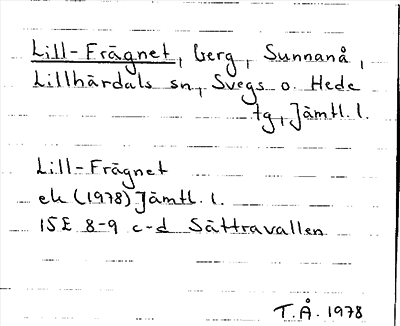 Lill-Frägnet, berg, Sunnanå,
Lillhärdals sn, Svegs o. Hede
tg, Jämtl. l.
Lill-Frägnet
ek (1978) Jämtl. l.
15E 8-9 c-d Sättravallen
T.Å. 1978